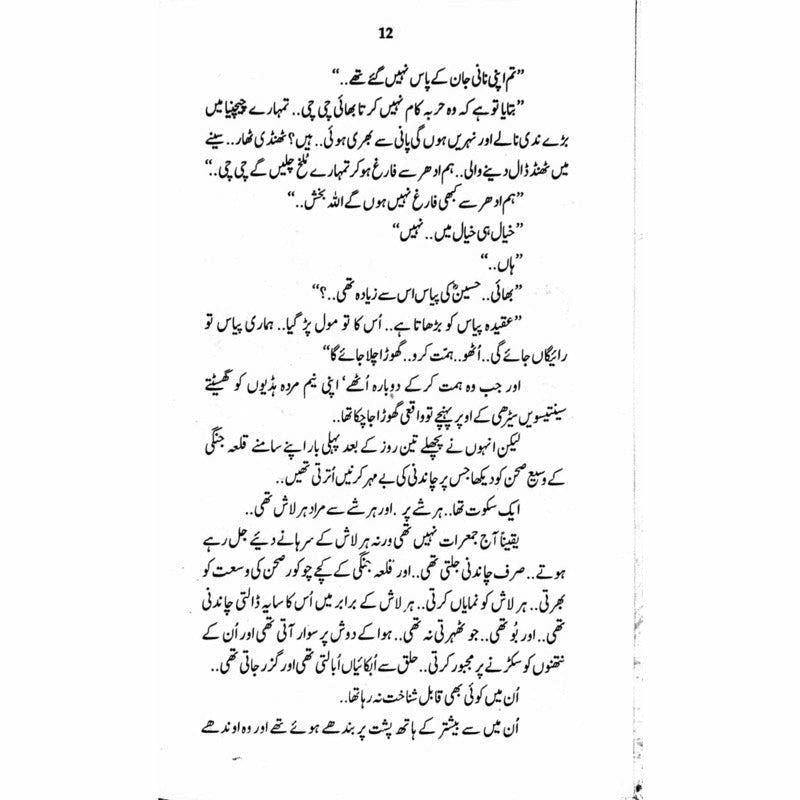 12
”تم اپنی نانی جان کے پاس نہیں گئے تھے..“
”بتایا تو ہے کہ وہ حربہ کام نہیں کرتا بھائی چی چی.. تمہارے چیچنیا میں
بڑے ندی نالے اور نہریں ہوں گی پانی سے بھری ہوئی.. ہیں؟ ٹھنڈی ٹھار.. سینے
میں ٹھنڈ ڈال دینے والی.. ہم ادھر سے فارغ ہو کر تمہارے ملخ چلیں گے چی چی..“
”ہم ادھر سے کبھی فارغ نہیں ہوں گے اللہ بخش..“
”خیال ہی خیال میں.. نہیں“
”ہاں..“
”بھائی.. حسینؓ کی پیاس اس سے زیادہ تھی..؟“
”عقیدہ پیاس کو بڑھاتا ہے.. اُس کا تو مول پڑ گیا.. ہماری پیاس تو
رائیگاں جائے گی.. اُٹھو.. ہمّت کرو.. گھوڑا چلا جائے گا“
اور جب وہ ہمت کر کے دوبارہ اُٹھے‘ اپنی نیم مردہ ہڈیوں کو گھسیٹتے
سینتیسویں سیڑھی کے اوپر پہنچے تو واقعی گھوڑا جا چکا تھا..
لیکن انہوں نے پچھلے تین روز کے بعد پہلی بار اپنے سامنے قلعہ جنگی
کے وسیع صحن کو دیکھا جس پر چاندنی کی بے مہر کرنیں اُترتی تھیں..
ایک سکوت تھا.. ہر شے پر. اور ہر شے سے مراد ہر لاش تھی..
یقیناً آج جمعرات نہیں تھی ورنہ ہر لاش کے سرہانے دیئے جل رہے
ہوتے.. صرف چاندنی جلتی تھی.. اور قلعہ جنگی کے کچے چوکور صحن کی وسعت کو
بھرتی.. ہر لاش کو نمایاں کرتی.. ہر لاش کے برابر میں اُس کا سایہ ڈالتی چاندنی
تھی.. اور بُو تھی.. جو ٹھہرتی نہ تھی.. ہوا کے دوش پر سوار آتی تھی اور اُن کے
نتھنوں کو سکڑنے پر مجبور کرتی.. حلق سے اُبکائیاں اُبالتی تھی اور گزر جاتی تھی..
اُن میں کوئی بھی قابل شناخت نہ رہا تھا..
اُن میں سے بیشتر کے ہاتھ پشت پر بندھے ہوئے تھے اور وہ اوندھے